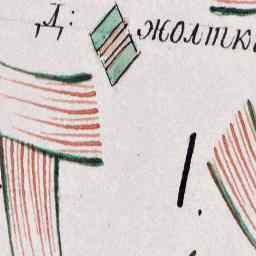 Д: жолтк